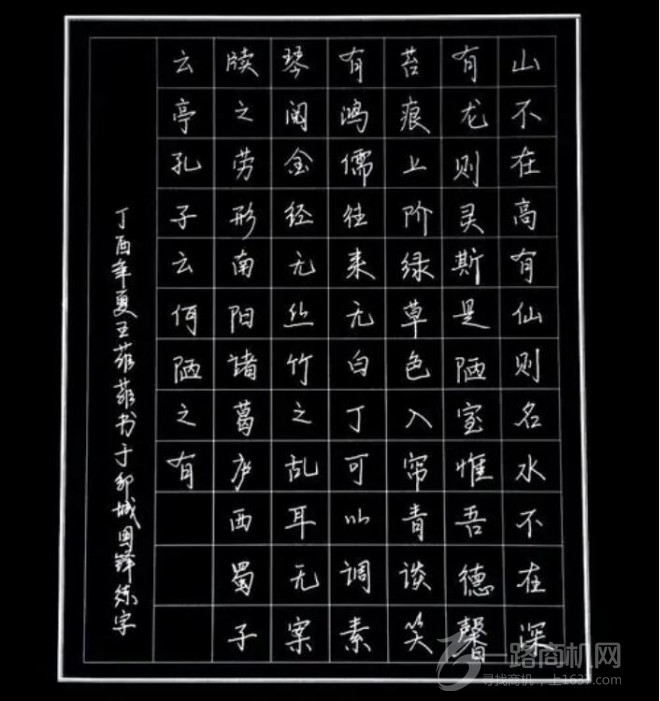 山不在高有仙则名水不在深
有龙则灵斯是陋室惟吾德馨
苔痕上阶绿草色入帘青谈笑
有鸿儒往来无白丁可以调素
琴阅金经无丝竹之乱耳无案
牍之劳形南阳诸葛庐西蜀子
云亭孔子云何陋之有
丁酉年夏王菲菲书于城周锋练字
一路商机网
寻找商机，上1637.com